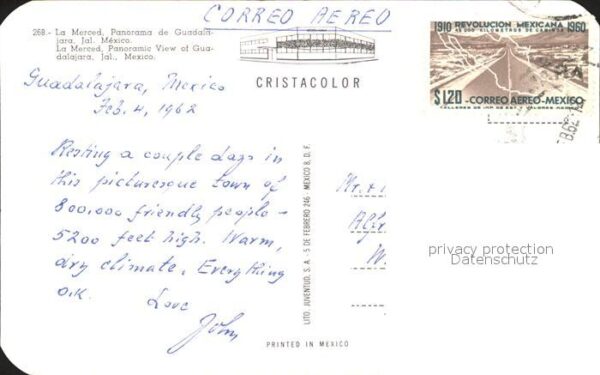 CORREO AEREO
268.- La Merced, Panorama de Guadala-
jara, Jal. México.
La Merced, Panoramic View of Gua-
dalajara, Jal., Mexico.
CRISTACOLOR
1910 REVOLUCION MEXICANA 1960
KILOMETROS DE CAMINOS
$1.20 -CORREO AEREO-MEXICO
Guadalajara, Mexico
Feb. 4, 1962
Resting a couple days in
this picturesque town of
800,000 friendly people -
5200 feet high. Warm,
dry climate. Everything
o.k.
Love
John
LITO. JUVENTUD, S. A. - 5 DE FEBRERO 246 - MEXICO 8, D. F.
Mr. &
privacy protection
Datenschutz
PRINTED IN MEXICO